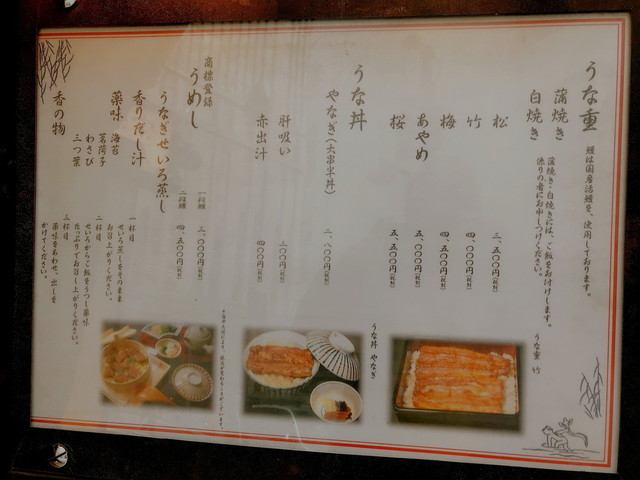 うな重
鰻は国産活鰻を、使用しております。
蒲焼き
白焼き
蒲焼き・白焼きには、ご飯をお付けします。
係りの者にお申しつけください。
松 三、五〇〇円(税別)
竹 四、〇〇〇円(税別)
梅 四、五〇〇円(税別)
あやめ 五、〇〇〇円(税別)
桜 五、五〇〇円(税別)
うな丼
やなぎ(大串半丼) 二、八〇〇円(税別)
肝吸い 三〇〇円(税別)
赤出汁 四〇〇円(税別)
商標登録
うめし
うなぎせいろ蒸し
一段鰻 三、〇〇〇円(税別)
二段鰻 四、五〇〇円(税別)
香りだし汁
薬味 海苔
茗荷子
わさび
三つ葉
香の物
一杯目
せいろ蒸しをそのまま
お召し上がりください。
二杯目
せいろからご飯をうつし薬味
たっぷりでお召し上がりください。
三杯目
薬味をあわせ、出しを
かけてください。
うな重 竹
うな丼 やなぎ